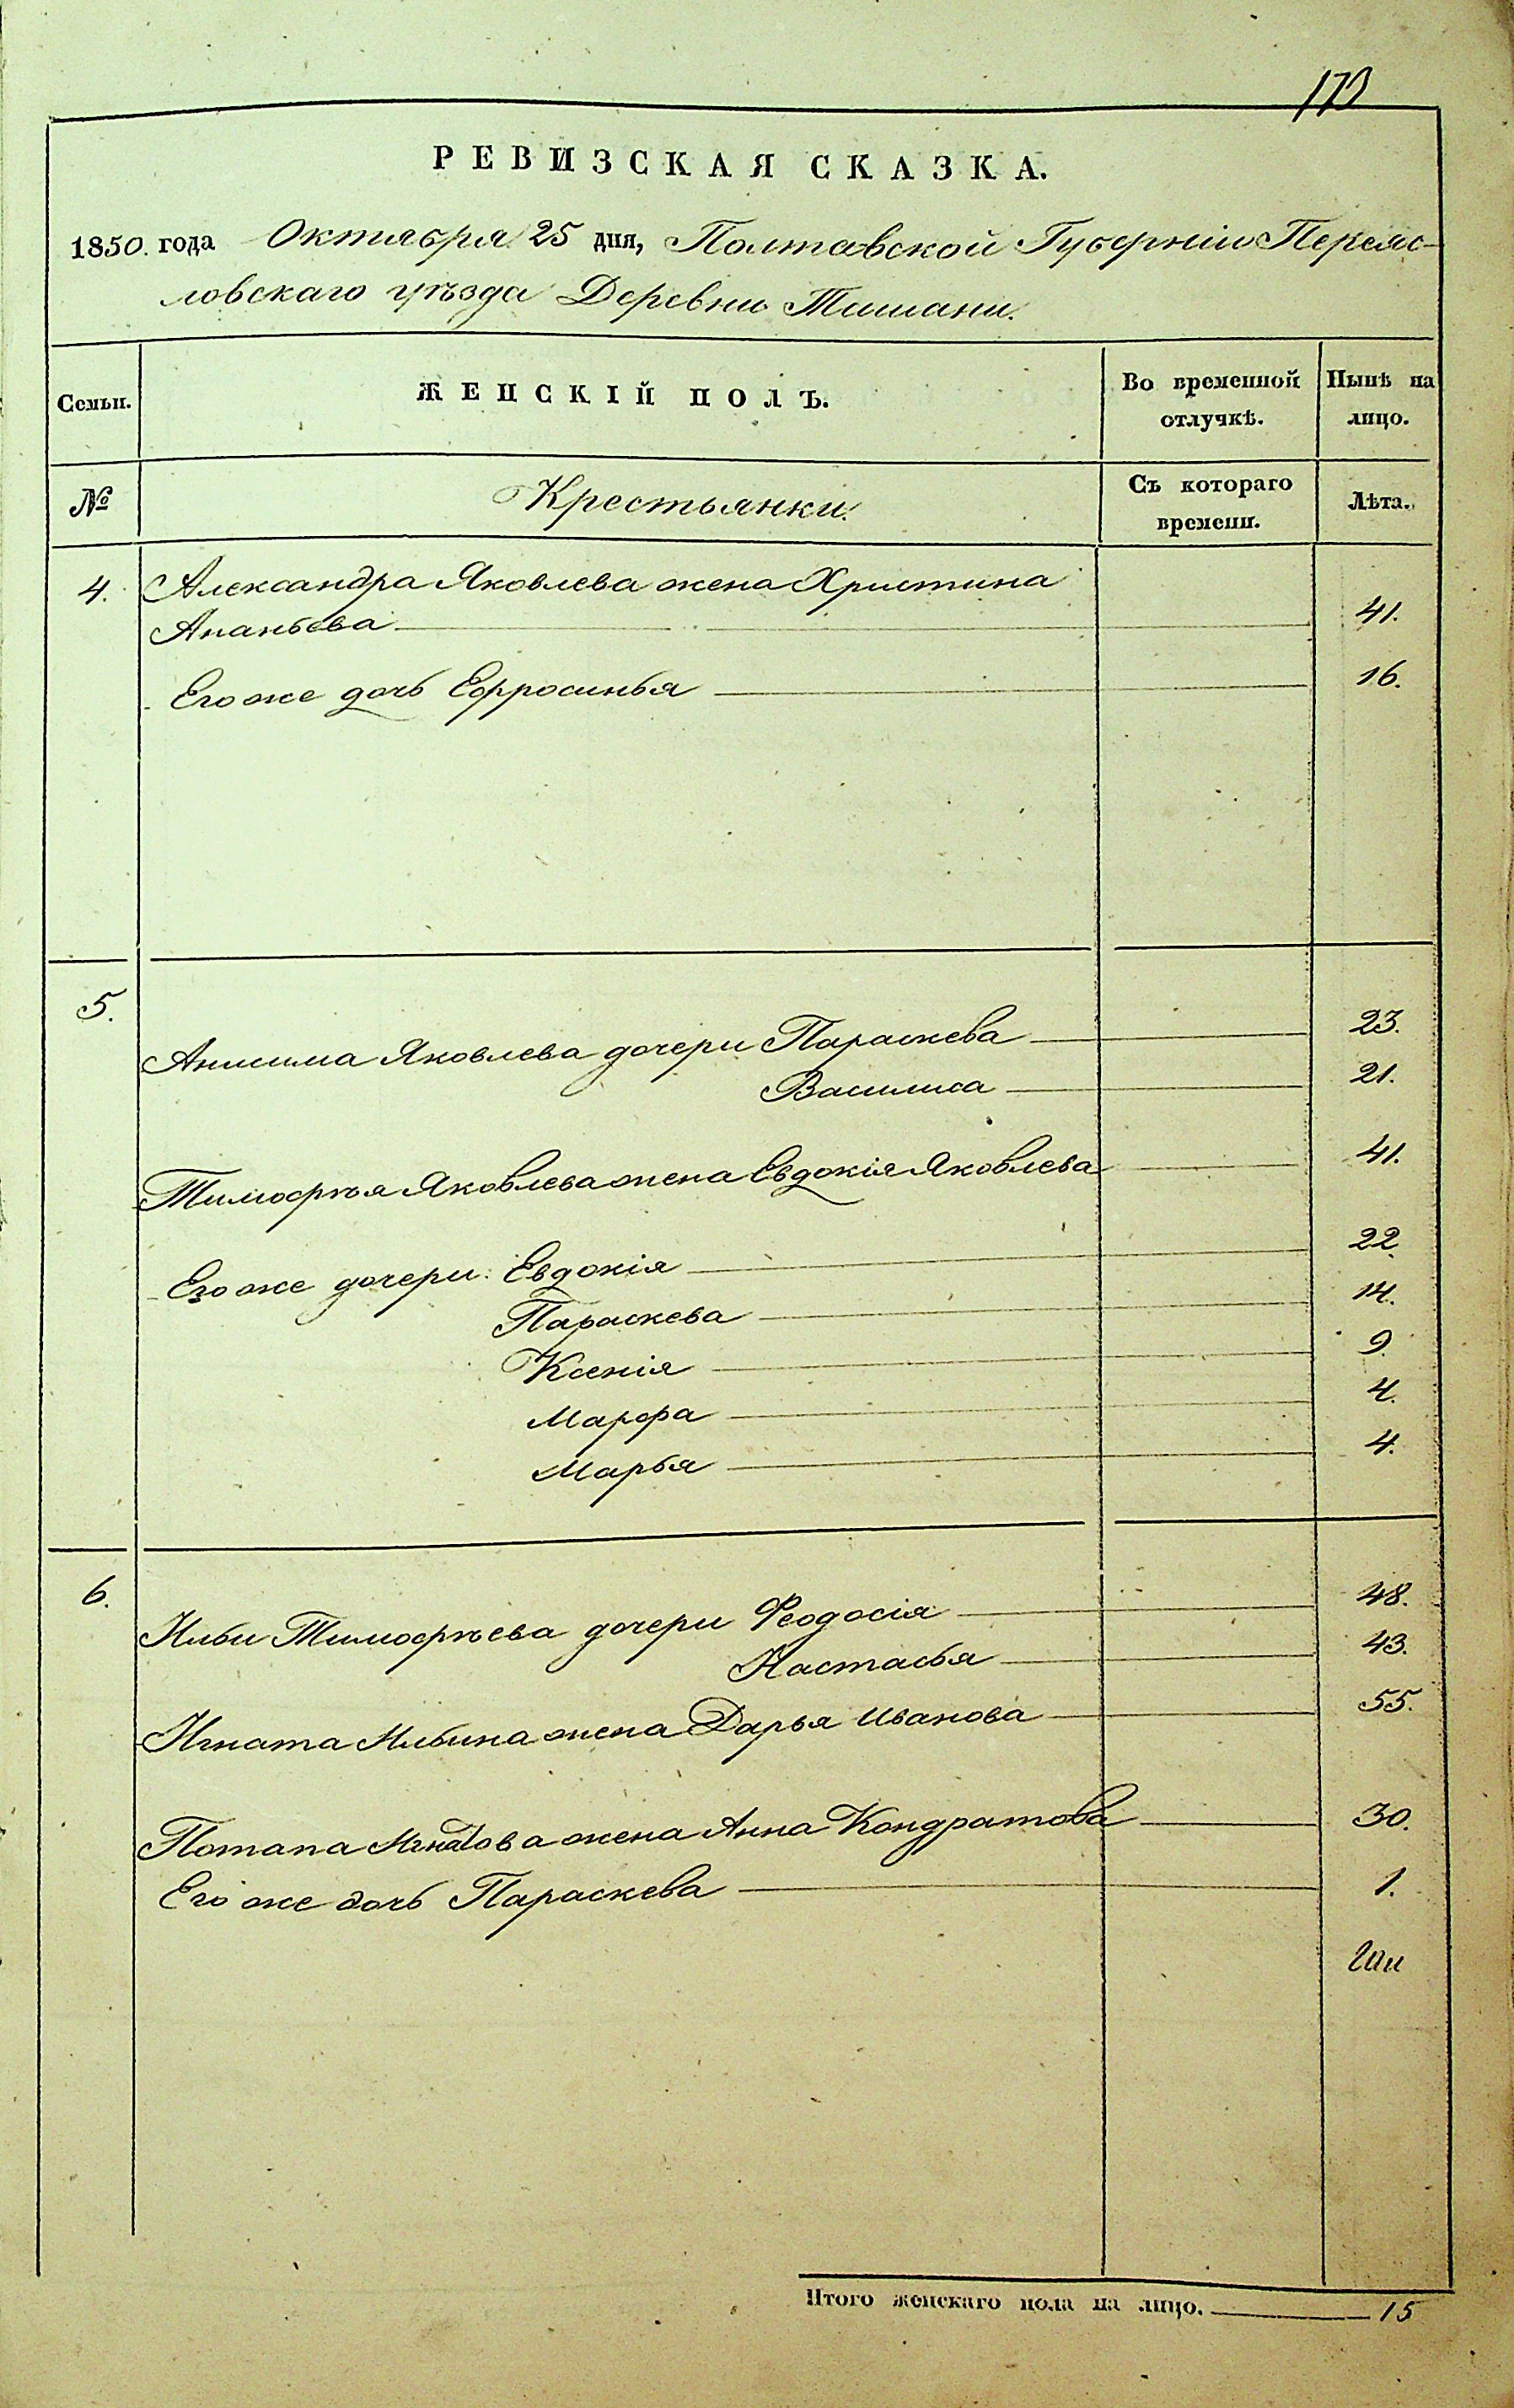 173
РЕВИЗСКАЯ СКАЗКА.
1850. года Октября 25 дня, Полтавской Губерніи Переяс-
ловскаго уѣзда Деревни Тишани.
Семьи. ЖЕНСКІЙ ПОЛЪ. Во временной отлучкѣ. Нынѣ на лицо.
№ Крестьянки. Съ котораго времени. Лѣта.
4. Александра Яковлева жена Христина
Ананьева 41.
Его же дочь Ефросинья 16.
5. Анисима Яковлева дочери Параскева 23.
Василиса 21.
Тимофѣя Яковлева жена Евдокія Яковлева 41.
Его же дочери: Евдокія 22.
Параскева 14.
Ксенія 9.
Марфа 4.
Марья 4.
6. Ильи Тимофѣева дочери Феодосія 48.
Настасья 43.
Игната Ильина жена Дарья Иванова 55.
Потапа Игнатова жена Анна Кондратова 30.
Его же дочь Параскева 1.
Итого женскаго пола на лицо. 15